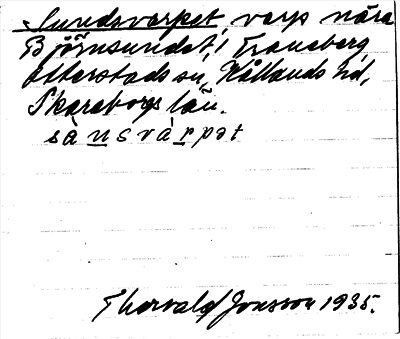 Sundsvarpet, varp nära
Björnsundet, Traneberg,
Otterstads sn, Kållands hd,
Skaraborgs län.
sànsvárpət
Thorvald Jonsson 1935.